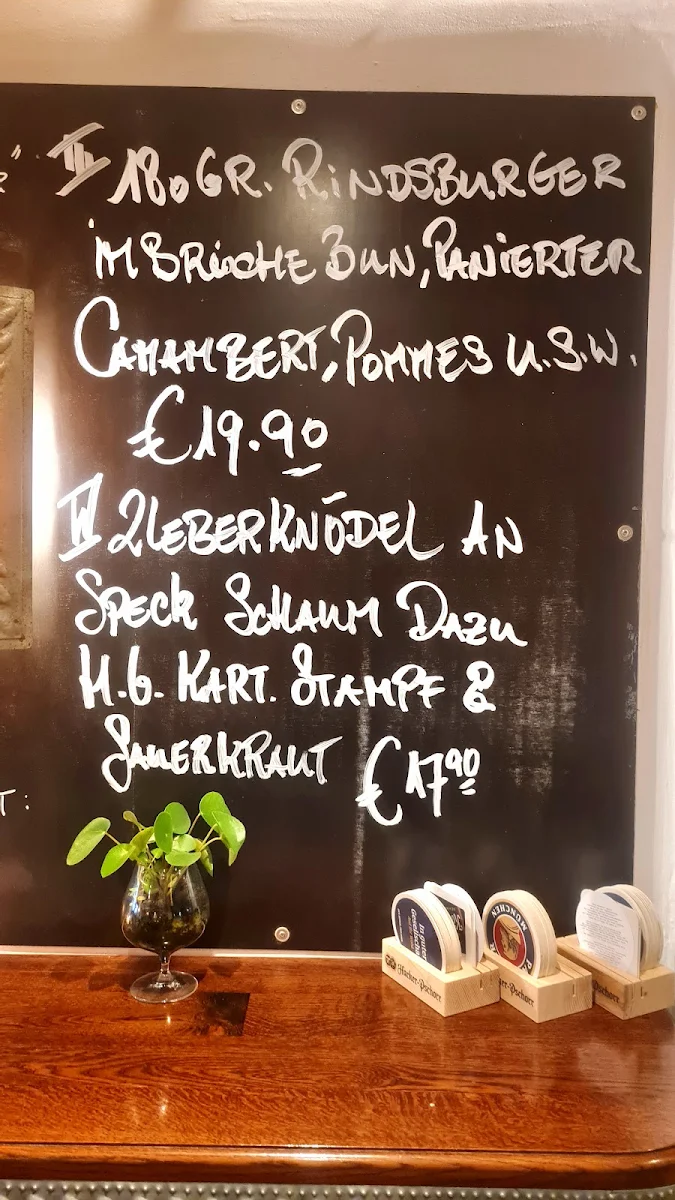 III 180GR. RINDSBURGER
IM BRIOCHE BUN, PANIERTER
CAMAMBERT, POMMES U.S.W.
€19.90
IV 2 LEBERKNÖDEL AN
SPECK SCHAUM DAZU
H.G. KART. STAMPF &
SAUERKRAUT €17 90
T:
In guter
Gesellschaft
Hacker-Pschorr
MÜNCHEN
er-Pschorr
Pschorr